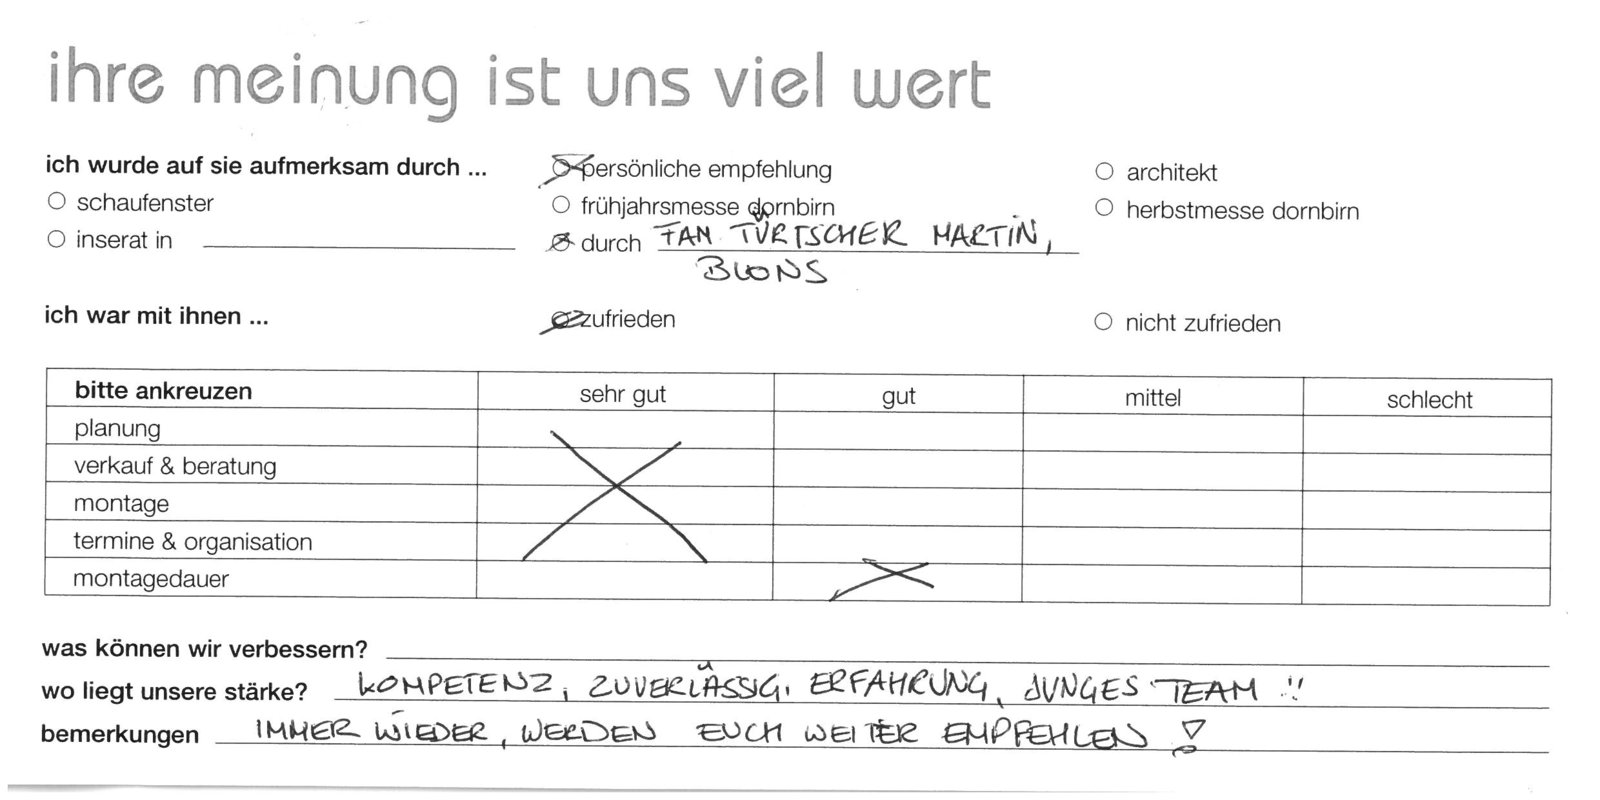 ihre meinung ist uns viel wert
ich wurde auf sie aufmerksam durch ...
persönliche empfehlung
architekt
schaufenster
frühjahrsmesse dornbirn
herbstmesse dornbirn
inserat in
durch FAM TÜRTSCHER MARTIN,
BLONS
ich war mit ihnen ...
zufrieden
nicht zufrieden
bitte ankreuzen sehr gut gut mittel schlecht
planung
verkauf & beratung
montage
termine & organisation
montagedauer
was können wir verbessern?
wo liegt unsere stärke? KOMPETENZ, ZUVERLÄSSIG, ERFAHRUNG, JUNGES TEAM !!
bemerkungen IMMER WIEDER, WERDEN EUCH WEITER EMPFEHLEN !